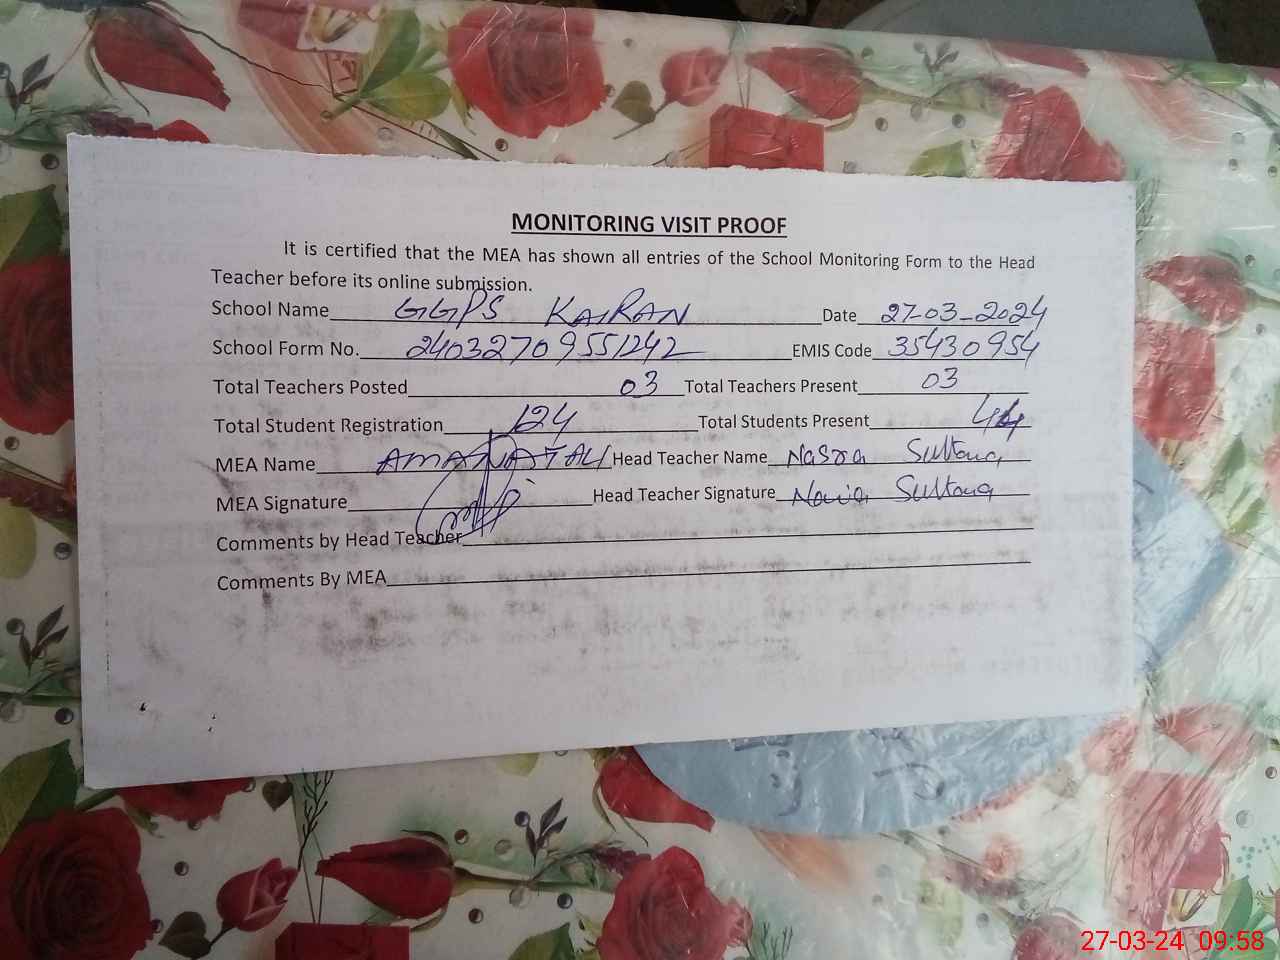 MONITORING VISIT PROOF
It is certified that the MEA has shown all entries of the School Monitoring Form to the Head
Teacher before its online submission.
School Name GGPS KAIRAN Date 27-03-2024
School Form No. 24032709551242 EMIS Code 35430954
Total Teachers Posted 03 Total Teachers Present 03
Total Student Registration 124 Total Students Present 44
MEA Name AMANAT ALI Head Teacher Name Nasra Sultana
MEA Signature Head Teacher Signature Sultana
Comments by Head Teacher
Comments By MEA
27-03-24 09:58